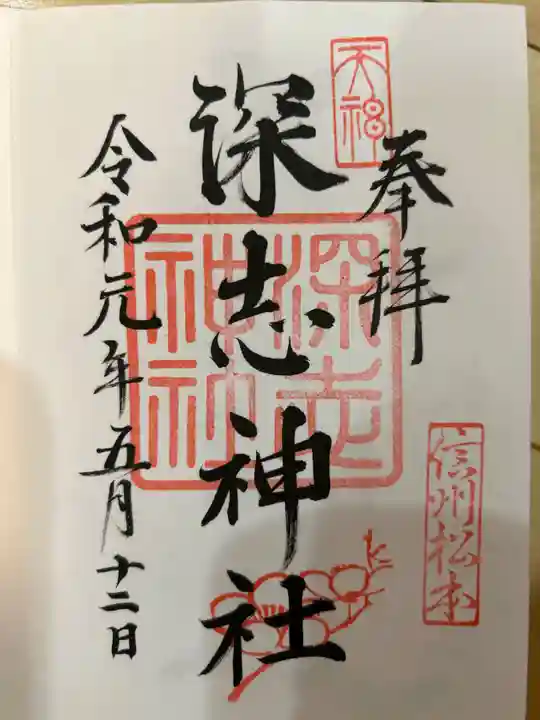 天福
奉拝
信州松本
深志神社
深志神社
令和元年五月十二日